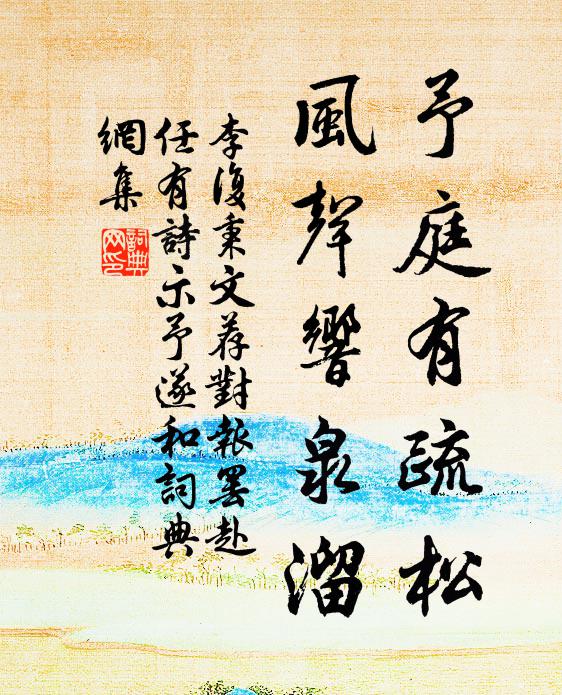 予庭有疏松
風聲響泉溜
李復秉文荐對報罢赴
任有詩示予遂和詞典
網集
詞典
网印